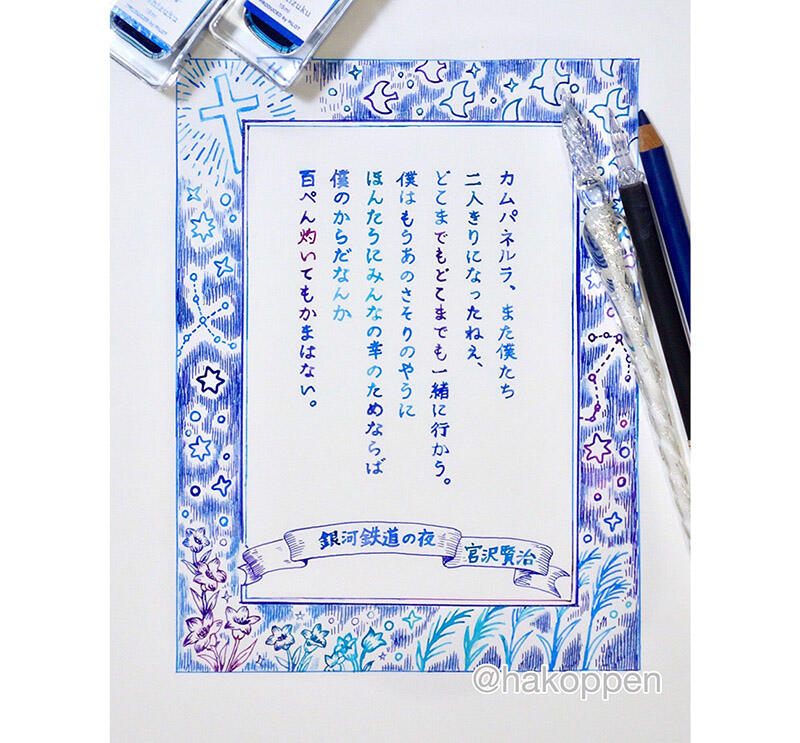 izuku
15ml
PRODUCED by PILOT
izuku
15ml
PRODUCED by PILOT
カムパネルラ、また僕たち
二人きりになったねえ、
どこまでもどこまでも一緒に行かう。
僕はもうあのさそりのやうに
ほんたうにみんなの幸のためならば
僕のからだなんか
百ぺん灼いてもかまはない。
銀河鉄道の夜
宮沢賢治
@hakoppen